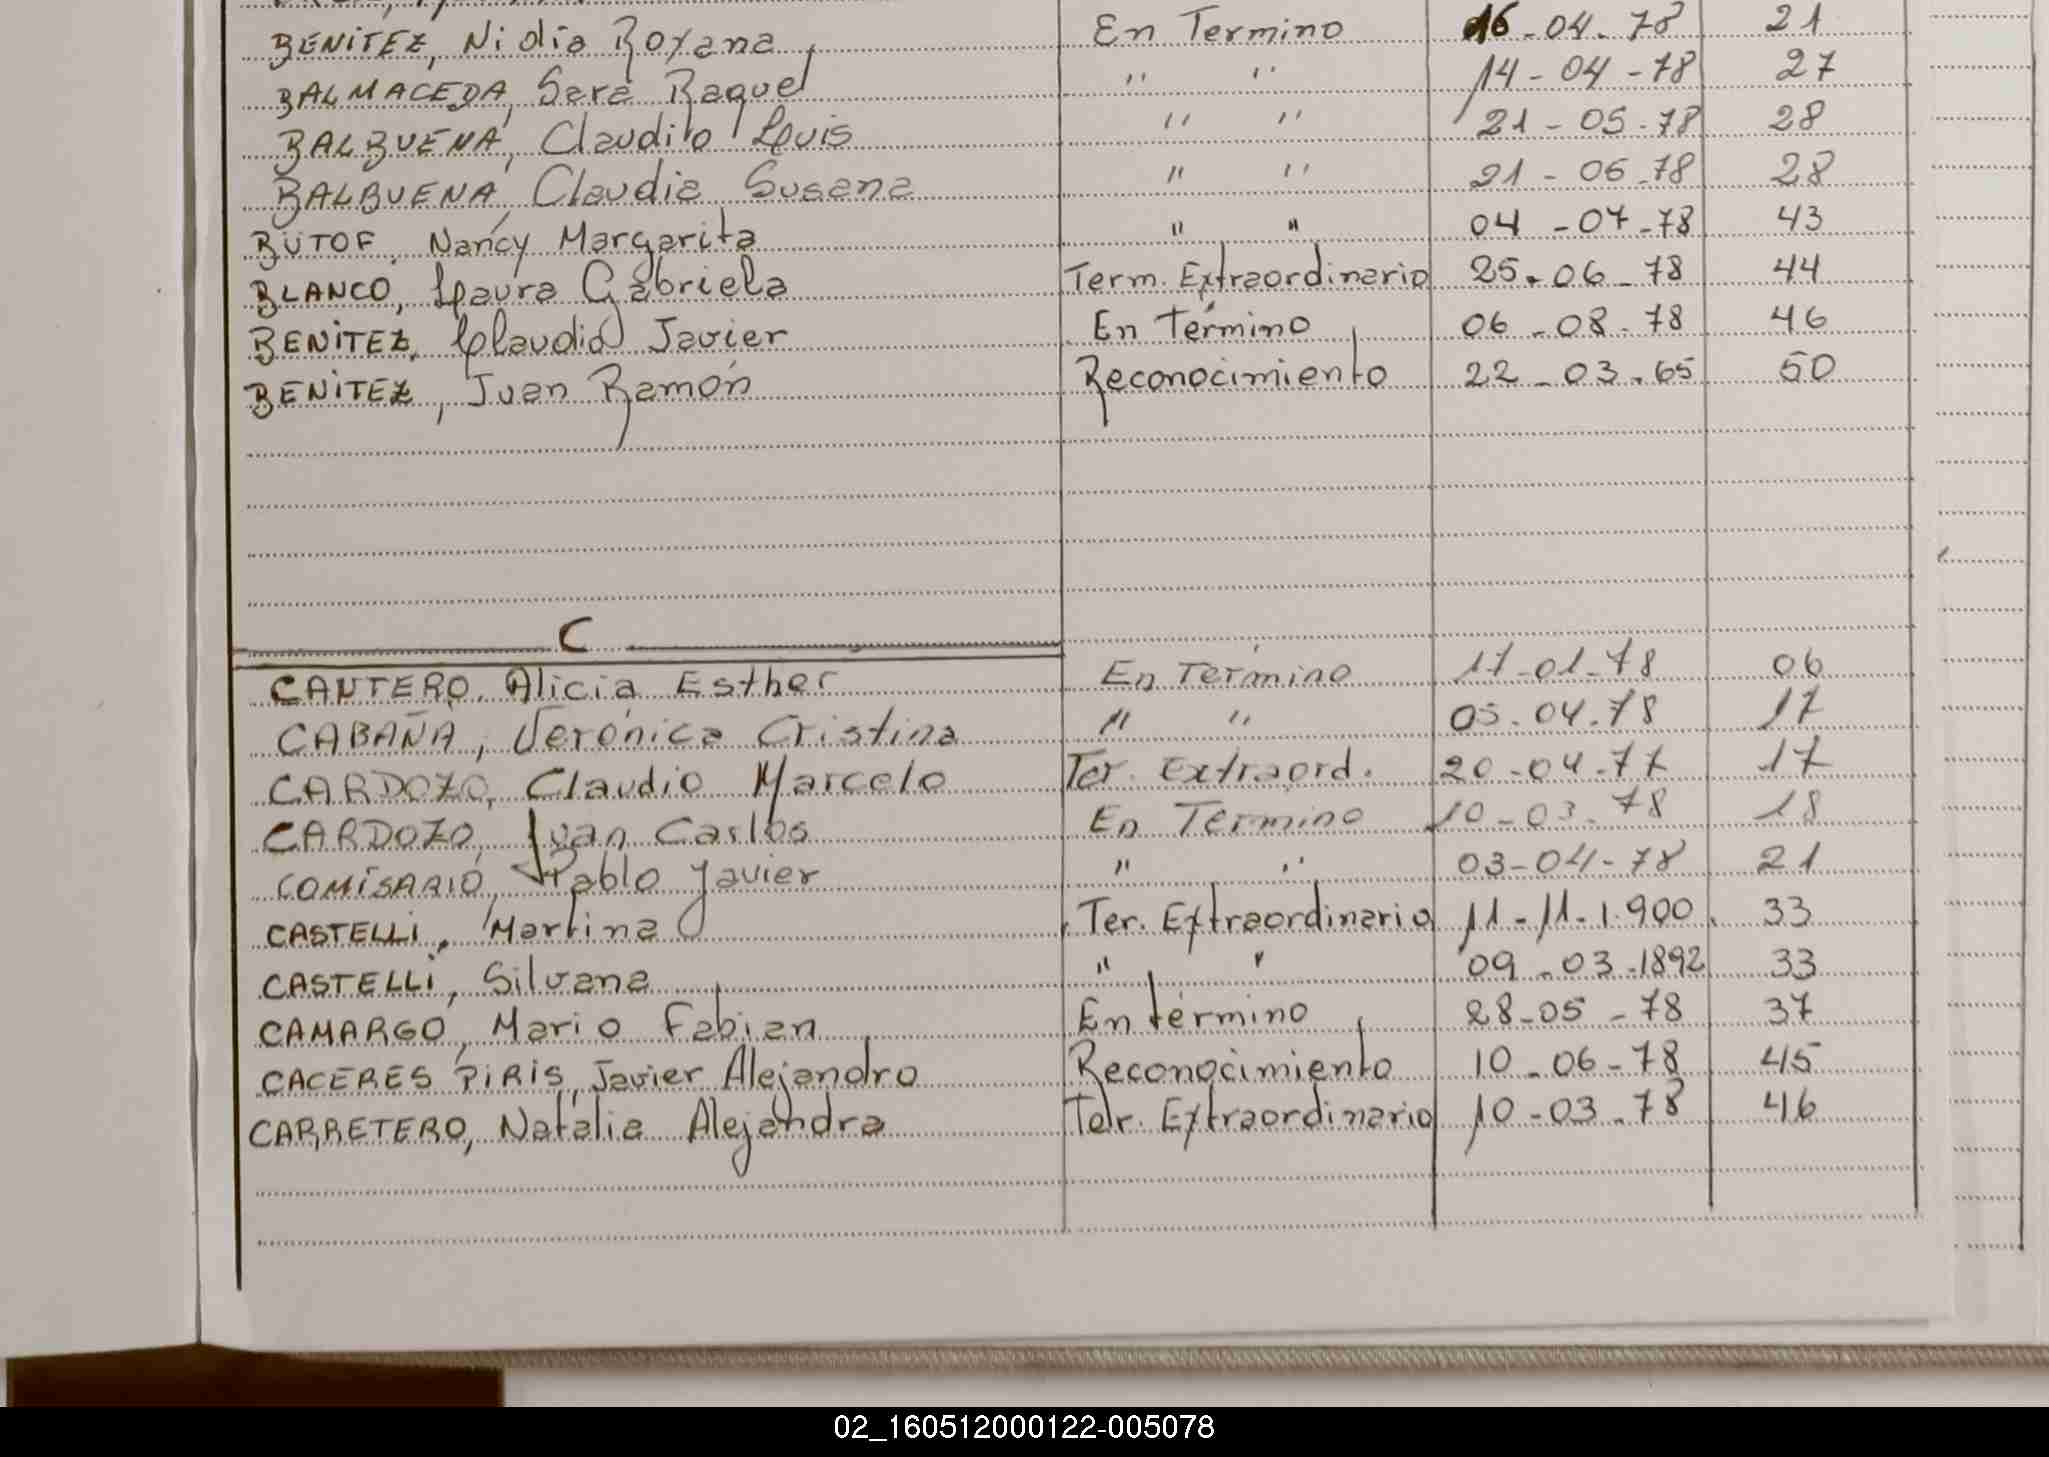 BENITEZ, Nidia Roxana En Termino 16-04-78 21
BALMACEDA, Sara Raquel " " 14-04-78 27
BALBUENA, Claudio Luis " " 21-05-78 28
BALBUENA, Claudia Susana " " 21-05-78 28
BUTOF, Nancy Margarita " " 04-07-78 43
BLANCO, Laura Gabriela Term. Extraordinario 25-06-78 44
BENITEZ, Claudio Javier En Término 06-08-78 46
BENITEZ, Juan Ramón Reconocimiento 22-03-65 50
C
CANTERO, Alicia Esther En Término 17-01-78 06
CABAÑA, Verónica Cristina " " 05-04-78 17
CARDOZO, Claudio Marcelo Ter. Extraord. 20-04-77 17
CARDOZO, Juan Carlos En Término 10-03-78 18
COMISARIO, Pablo Javier " " 03-04-78 21
CASTELLI, Martina Ter. Extraordinario 11-11-1.900. 33
CASTELLI, Silvana " " 09-03-1892 33
CAMARGO, Mario Fabian En término 28-05-78 37
CACERES PIRIS, Javier Alejandro Reconocimiento 10-06-78 45
CARRETERO, Natalia Alejandra Ter. Extraordinario 10-03-78 46
02_160512000122-005078